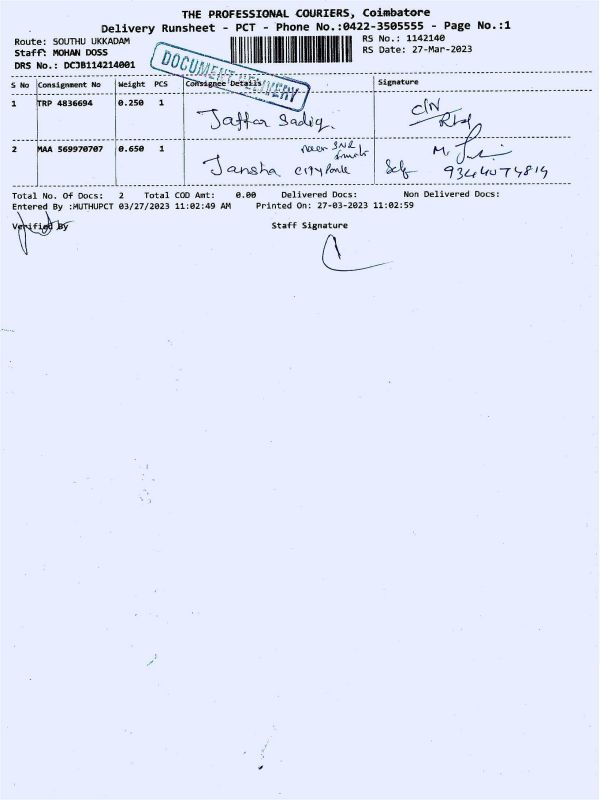 THE PROFESSIONAL COURIERS, Coimbatore
Delivery Runsheet - PCT - Phone No.:0422-3505555 - Page No.:1
Route: SOUTHU UKKADAM
RS No.: 1142140
Staff: MOHAN DOSS
RS Date: 27-Mar-2023
DRS No.: DCJB114214001
DOCUMENT DELIVERY
S No Consignment No Weight PCS Consignee Details Signature
1 TRP 4836694 0.250 1 Jaffar Sadiq. C/N
2 MAA 569970707 0.650 1 Near SNR
Jansha Self 9344074814
Total No. Of Docs: 2 Total COD Amt: 0.00 Delivered Docs: Non Delivered Docs:
Entered By :MUTHUPCT 03/27/2023 11:02:49 AM Printed On: 27-03-2023 11:02:59
Verified By Staff Signature